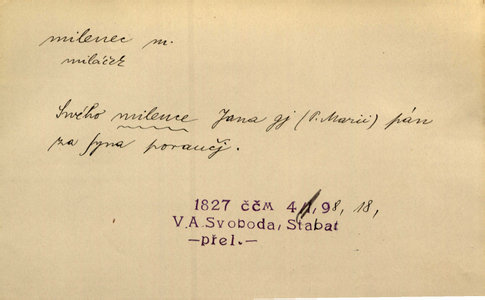 milenec m.
miláček
Swého milence Jana gj (P. Marii) pán
za syna poraučj.
1827 ččM 4/1, 98, 18,
V. A. Svoboda, Stabat
—přel.—